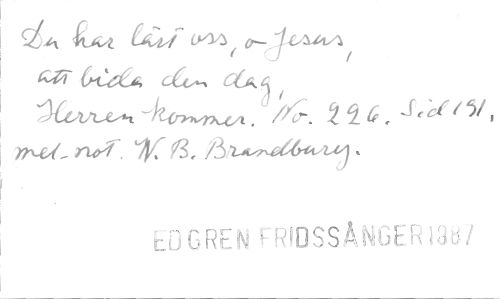 Du har lärt oss, o Jesus,
att bida den dag,
Herren kommer. No. 226. Sid 191.
mel-not. W. B. Brandbury.
EDGREN FRIDSSÅNGER 1887